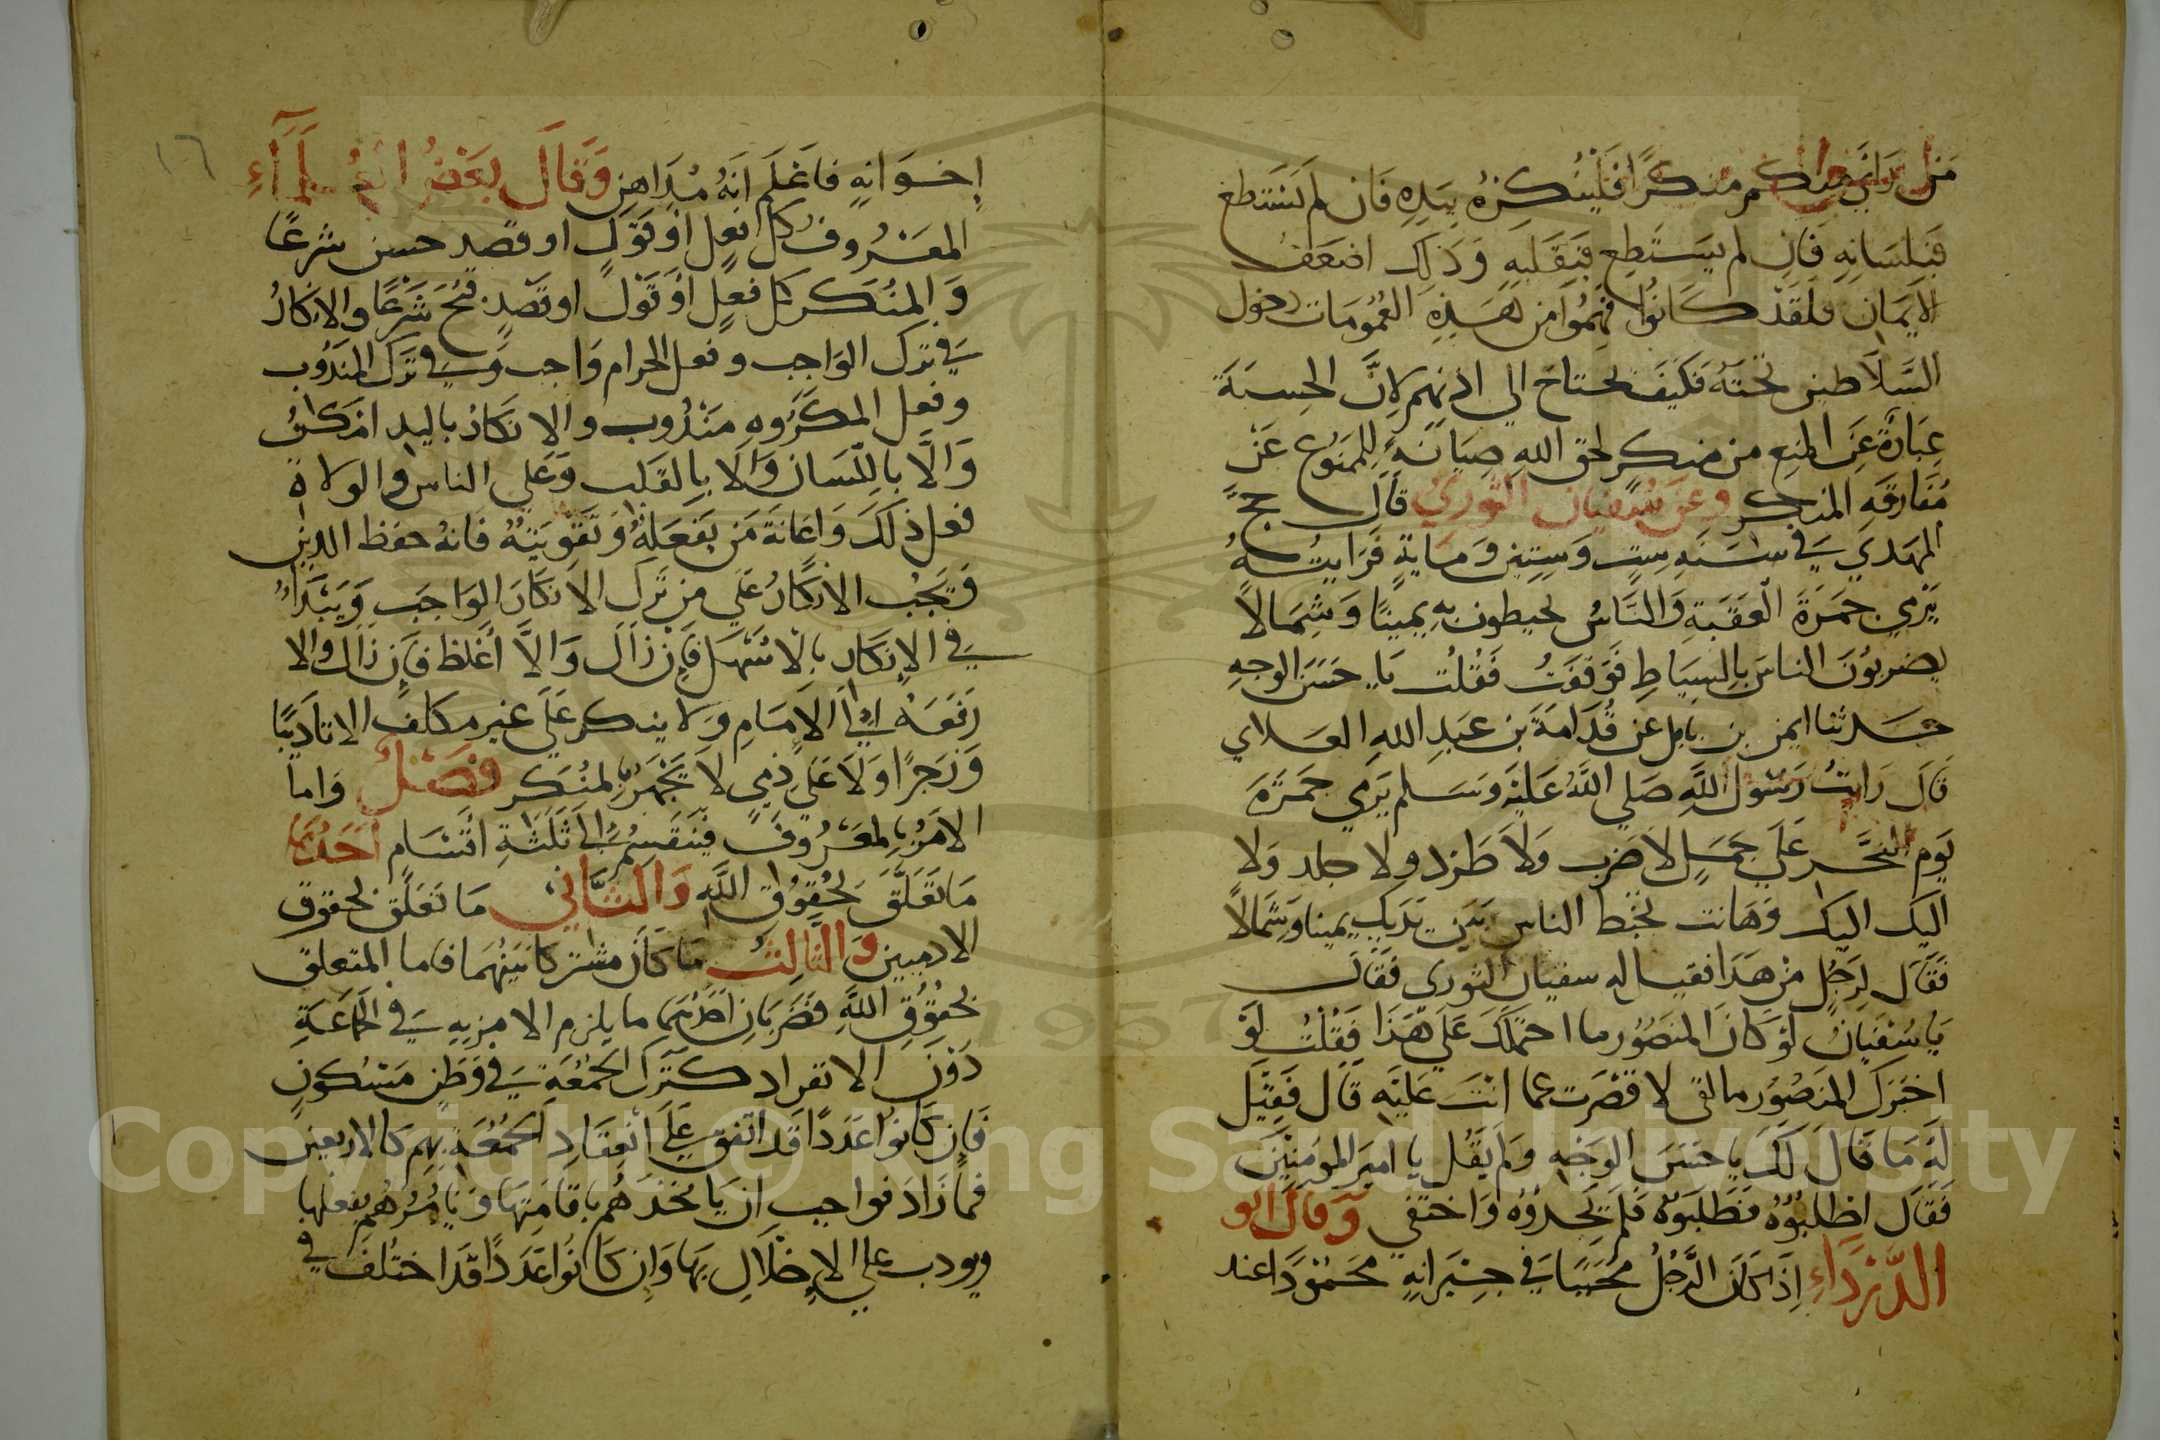 من رأى منكم منكرًا فَلْيُنكِرْهُ بيَدِهِ فَان لم يَسْتَطع
فبلسَانِهِ فَان لم يَستَطِع فَبقَلبِهِ وَذَلِكَ اضعَفُ
الايمَان فَلَقَدْ كَانُوا فهِمُوا مِن هَذِهِ العُمُومَات دخول
السَّلَاطين تَحتَهُ فَكَيفَ يحتاج الي اذنهم لِانَّ الحِسبَة
عِبَارَةٌ عَنِ المنِعِ من منكرٍ لحق اللهِ صِيَانَةً لِلمَنوُعِ عَنْ
مُقَارفَةِ المنكر وعَن سُفيَان الثوري قَالَ حجَّ
المهدي في سَنَةِ سِتٍ وَسِتِينَ ومَايةٍ فَرَايتُهُ
يَرْمي جمَرَةَ العَقَبَةِ وَالنَّاسُ يحيطون به يمِينًا وَشِمَالًا
يضربوُنَ الناسَ بِالسِيَاطِ فَوَقفتُ فَقُلتُ يَا حَسَنَ الوجهِ
حدثنا ايمن بن نابل عن قُدَامَةَ بن عَبدِ اللهِ العلاي
قَالَ رَايتُ رَسُولَ اللَّهِ صَلي اللَّهُ عَليْهَ وَسَلم يَرمي جمَرَةَ
يَوم النحَّر عَلَي جمَلٍ لا ضرب وَلَا طَرْد ولا جلد وَلا
اليَك اليَك وَهَا انت تخبط الناس بَين يَدَيك يمينا وَشمَالاً
فَقَالَ لِرَجُلٍ مَنْ هَذَا فقيل له سفيان الثوري فَقَالَ
يَا سُفيَانُ لَو كَانَ المنصُور ما احتملكَ عَلَي هَذَا فَقُلتُ لَوْ
اخبَرَكَ المنصُور مالقي لا قصرت عما انتَ عَليْهِ قَالَ فَقِيَل
لَهَ مَا قَالَ لَكَ يا حسَن الوَجْهِ وَلَم يَقُل يا اميرَ المومِنِينَ
فَقَالَ اطلبُوُهُ فَطَلَبُوهُ فَلَم يَجدوُهُ وَاختَفي وَقَالَ ابو
الدَّرْدَاءِ اِذَا كَانَ الرَّجُلُ مُحَبَّبًا في جيرَانِهِ محَمُودًا عند
١٦
اِخوَانِهِ فاعَلَم انَهُ مُدَاهِن وَقَالَ بعَضُ العُلمَآءِ
المعَرُوف كل فعِلٍ اوقَولٍ او قصد حسن شرعًا
وَالمنُكَر كل فعِلٍ اوْ قَوْلٍ او قَصْدٍ قبُح شَرْعًا والانكارُ
في ترك الوَاجب وفعل الحرام وَاجب وَفي تَركَ المندُوب
وفعل المكرَوُهِ مَنْدُوب والانكَارُ باليد ان امكن
وَالَّا باللِّسَان وَالا بِالقَلب وَعَلي الناس وَالولاة
فعل ذَلَك وَاعَانَة مَن يفعَلهُ وَتقَوِيَتهُ فَانهُ حفظ الدين
وَيجُب الانكارُ عَلَي من تَرك الانكَارَ الواجَب وَيَبْدَاُ
في الاِنكَار بالاسهَل فَاِن زَالَ وَالَّا اغَلظ فاِن زَالَ والا
رَفعَهُ اِلي الامَامِ وَلاينكر عَلي غير مكلف الا تاديبًا
وَزَجرًا وَلَا عَلي ذمي لَا يَجْهرُ بالمُنكَر فصَلٌ وَاما
الامَرُ بالمعَروُفَ فينَقَسِمُ الي ثَلَثَةِ اقَسَام احَدُهَا
مَا تَعَلَّقَ بحُقوُق اللَّهِ وَالثَّاني مَا تَعَلَق بحقوق
الادميين وَالثَّالِثُ مَا كَانَ مشتركا بَينهُما فاما المتعلق
بحُقوُقِ اللَّهِ فضَربَانِ احَدُهُمَا مايلزم الامر به في الجَمَاعَةِ
دُونَ الانفراد كَتَرك الجمُعَةِ في وَطَنٍ مَسْكُونٍ
فَان كَانوُا عَدَدًا قَد اتفق عَلَي انعِقَادِ الجُمُعَةِ بِهِم كالاربعين
فما زَادَ فواجب ان يَاخُذَهُم باقامَتِهَا وَيَامُرُهُم بفعلِهَا
ويودب علي الاِخلَالِ بها وَاِن كَانوُا عَدَدًا قَد اختُلفَ في
Copyright © King Saud University
1957